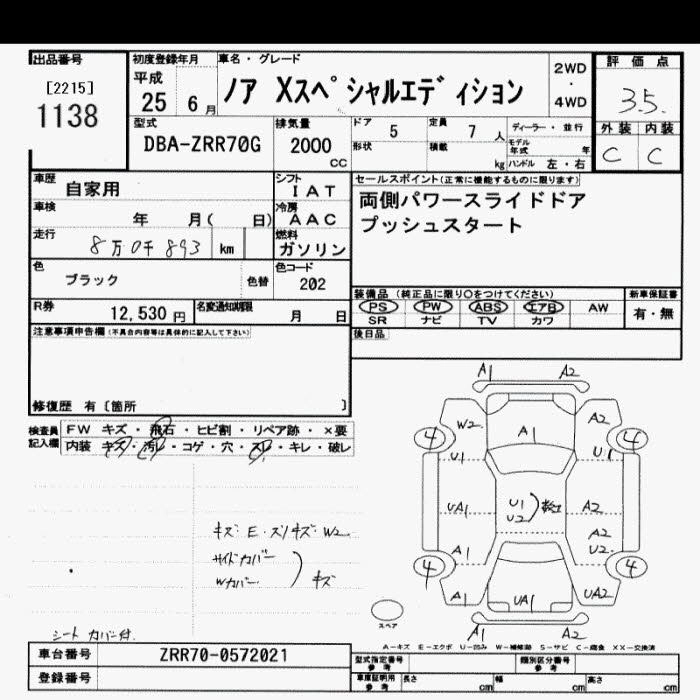 出品番号
[2215]
1138
初度登録年月
平成
25 6月
車名・グレード
ノア Xスペシャルエディション
2WD
・
4WD
評価点
3.5
外装 内装
C C
型式
DBA-ZRR70G
排気量
2000
CC
ドア 5
定員 7 人
形状
積載 kg
ディーラー・並行
モデル年式 年
ハンドル 左・右
車歴 自家用
シフト
IAT
車検 年 月( 日)
冷房
AAC
走行 8万0千893 km
燃料
ガソリン
色 ブラック 色替
色コード
202
R券 12,530 円
名変通知期限 月 日
セールスポイント(正常に機能するものに限ります)
両側パワースライドドア
プッシュスタート
装備品 (純正品に限り○をつけてください)
PS PW ABS エアB AW
SR ナビ TV カワ
新車保証書
有・無
後日品
注意事項申告欄(不具合内容等は具体的に記入して下さい)
修復歴 有〔箇所 〕
検査員記入欄
FW キズ・飛石・ヒビ割・リペア跡・×要
内装 キズ・汚レ・コゲ・穴・スレ・キレ・破レ
キズ E・スリキズ・W2
サイドカバー
Wカバー
キズ
シートカバー付.
A1 A2
W2 A1 A2
4 4
U1 U1
UA1 U1 A2
U2
A2
A1 U2
4 4
A1 UA1 UA2
A1 A2
スペア
A-キズ E-エクボ U-凹み W-補修跡 S-サビ C-腐食 XX-交換済
車台番号 ZRR70-0572021
登録番号
型式指定番号
参考
類別区分番号
参考
車庫証明用
参考
長さ cm 幅 cm 高さ cm